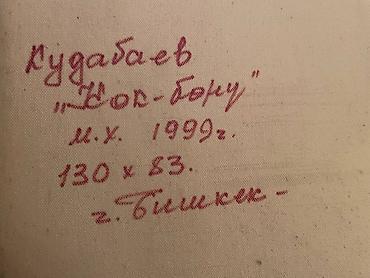 Кудабаев
„Кок-бору"
м.х. 1999г.
130 x 83.
г. Бишкек -